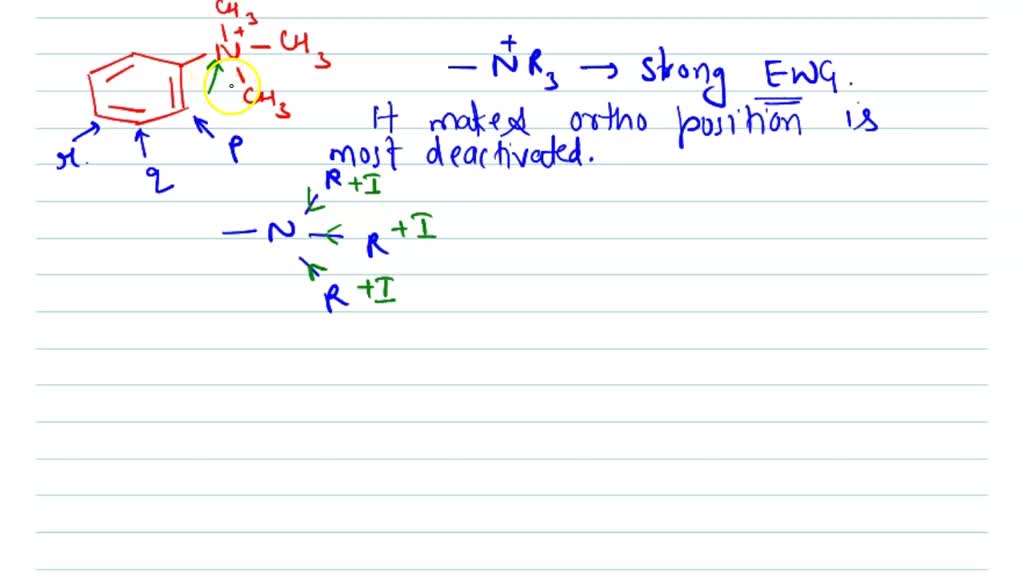 CH3
N+ — CH3
CH3
p
q
r.
— N+R3 → strong EWG.
It makes ortho position is
most deactivated.
R +I
— N — R +I
R +I